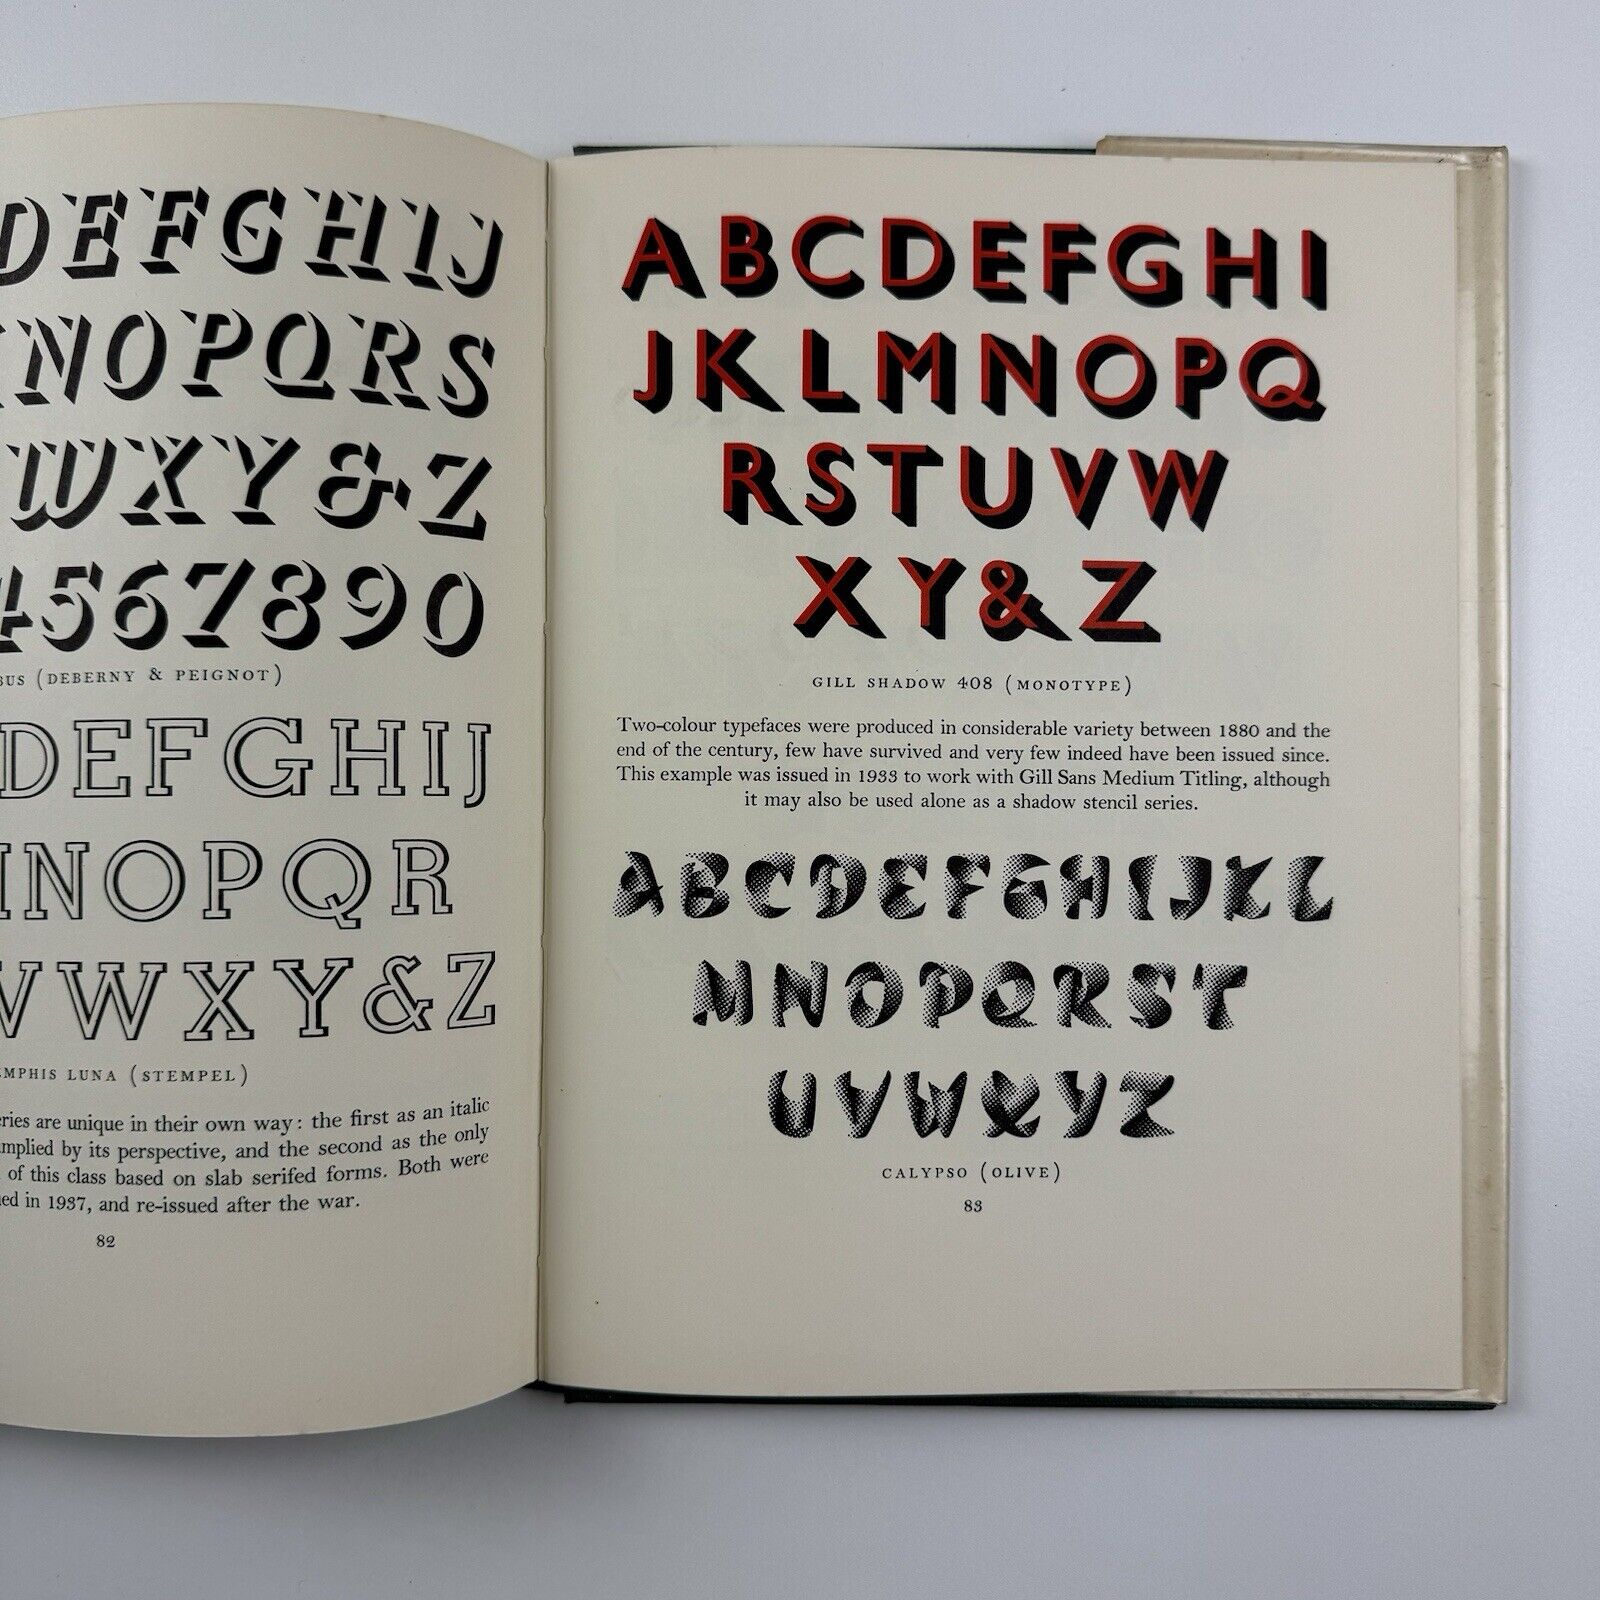 DEFGHIJ
NOPQRS
WXY&Z
4567890
BUS (DEBERNY & PEIGNOT)
DEFGHIJ
NOPQR
VWXY&Z
MPHIS LUNA (STEMPEL)
eries are unique in their own way: the first as an italic
mplied by its perspective, and the second as the only
of this class based on slab serifed forms. Both were
ed in 1937, and re-issued after the war.
82
ABCDEFGHI
JKLMNOPQ
RSTUVW
XY&Z
GILL SHADOW 408 (MONOTYPE)
Two-colour typefaces were produced in considerable variety between 1880 and the
end of the century, few have survived and very few indeed have been issued since.
This example was issued in 1933 to work with Gill Sans Medium Titling, although
it may also be used alone as a shadow stencil series.
ABCDEFGHIJKL
MNOPQRST
UVWXYZ
CALYPSO (OLIVE)
83